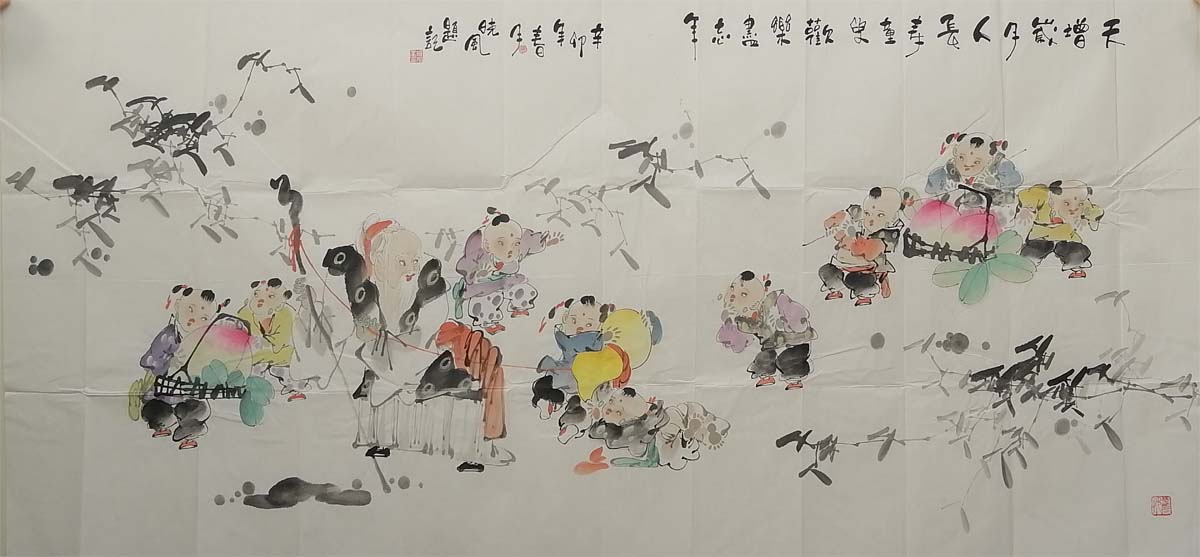 天增歲月人長壽童叟歡樂盡忘年
辛卯年春月曉風題記